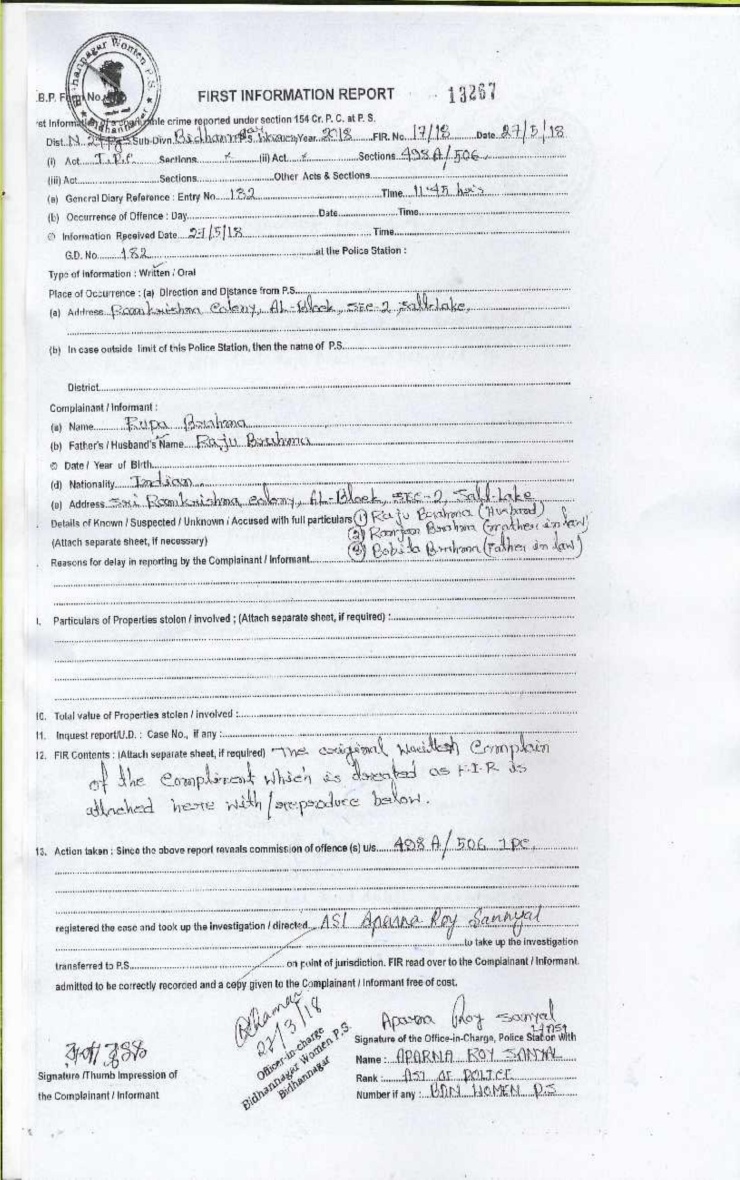 Bidhannagar Women P.S.
Bidhannagar
B.P. Form No.
FIRST INFORMATION REPORT
13267
rst Information of a cognizable crime reported under section 154 Cr. P. C. at P. S.
Dist. N 24 Pgs Sub-Divn. Bidhannagar P.S. Women Year 2018 FIR. No. 17/18 Date 27/5/18
(i) Act I.P.C Sections x (ii) Act x Sections 498A/506
(iii) Act Sections Other Acts & Sections
(a) General Diary Reference : Entry No 132 Time 11:45 hrs
(b) Occurrence of Offence : Day Date Time
© Information Received Date 27/5/18 Time
G.D. No. 132 at the Police Station :
Type of Information : Written / Oral
Place of Occurrence : (a) Direction and Distance from P.S.
(a) Address Ramkrishna Colony, AL-Block, SEC-2, Salt-Lake,
(b) In case outside limit of this Police Station, then the name of P.S.
District
Complainant / Informant :
(a) Name Rupa Brahma
(b) Father's / Husband's Name Raju Brahma
© Date / Year of Birth
(d) Nationality Indian
(e) Address Sri Ramkrishna Colony, AL-Block, SEC-2, Salt-Lake
Details of Known / Suspected / Unknown / Accused with full particulars (1) Raju Brahma (Husband)
(2) Ranjan Brahma (mather in law)
(Attach separate sheet, if necessary) (3) Bobita Brahma (Father in law)
Reasons for delay in reporting by the Complainant / Informant
Particulars of Properties stolen / involved ; (Attach separate sheet, if required) :
10. Total value of Properties stolen / involved :
11. Inquest report/U.D. : Case No., if any :
12. FIR Contents : (Attach separate sheet, if required) The original Written Complain
of the Complinent which is doreated as F.I.R is
attached here with/reproduce below.
13. Action taken : Since the above report reveals commission of offence (s) u/s. 498A/506 IPC,
registered the case and took up the investigation / directed ASI Aparna Roy Sannyal
to take up the investigation
transferred to P.S. on point of jurisdiction. FIR read over to the Complainant / Informant.
admitted to be correctly recorded and a copy given to the Complainant / Informant free of cost.
27/3/18
Officer-in-charge
Bidhannagar Women P.S.
Bidhannagar
Signature /Thumb Impression of
the Complainant / Informant
Aparna Roy Sanyal
Signature of the Office-in-Charge, Police Station with
Name : APARNA ROY SANYAL
Rank : ASI OF POLICE
Number if any : BDN WOMEN P.S